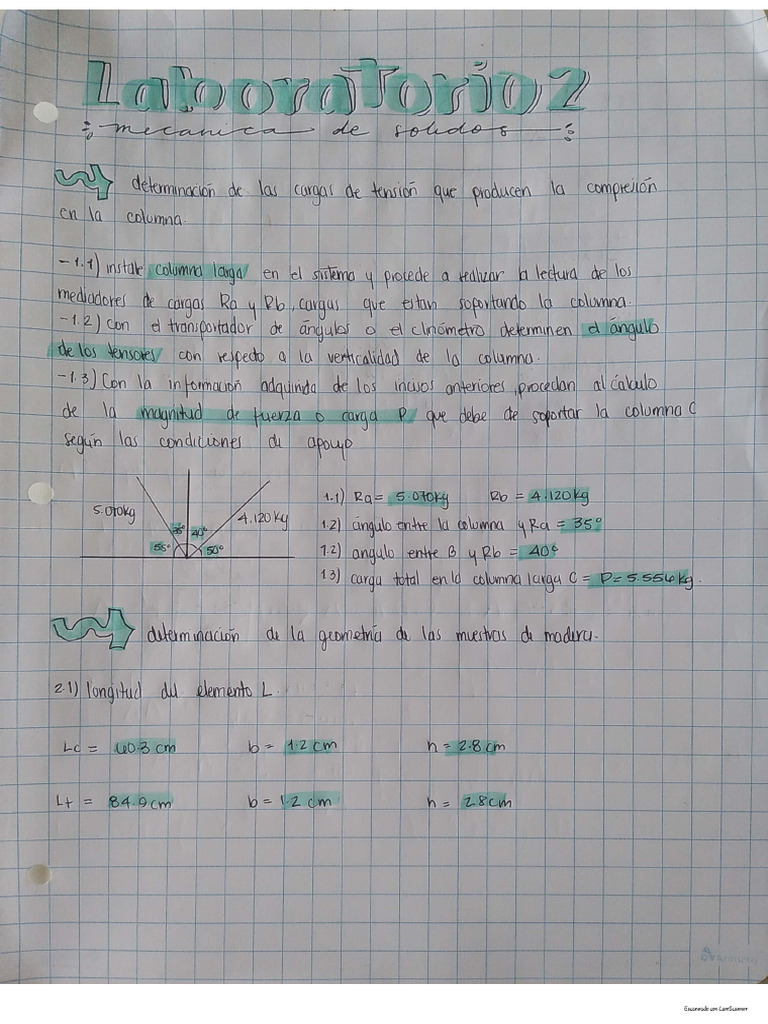 Laboratorio 2
mecanica de solidos
determinación de las cargas de tensión que producen la compresión
en la columna.
-1.1) instale columna larga en el sistema y procede a realizar la lectura de los
mediadores de cargas Ra y Rb, cargas que estan soportando la columna.
-1.2) Con el transportador de ángulos o el clinómetro determinen el ángulo
de los tensores con respecto a la verticalidad de la columna.
-1.3) Con la información adquirida de los incisos anteriores, procedan al cálculo
de la magnitud de fuerza o carga P que debe de soportar la columna C
según las condiciones de apoyo
5.070kg 4.120kg
35° 40°
55° 50°
1.1) Ra= 5.070kg Rb = 4.120kg
1.2) ángulo entre la columna y Ra = 35°
1.2) angulo entre B y Rb = 40°
1.3) carga total en la columna larga C = P= 5.556kg.
determinación de la geometría de las muestras de madera.
2.1) longitud del elemento L.
Lc = 40.3 cm b = 1.2 cm h = 2.8 cm
Lt = 84.9 cm b = 1.2 cm h = 2.8cm
Escaneado con CamScanner